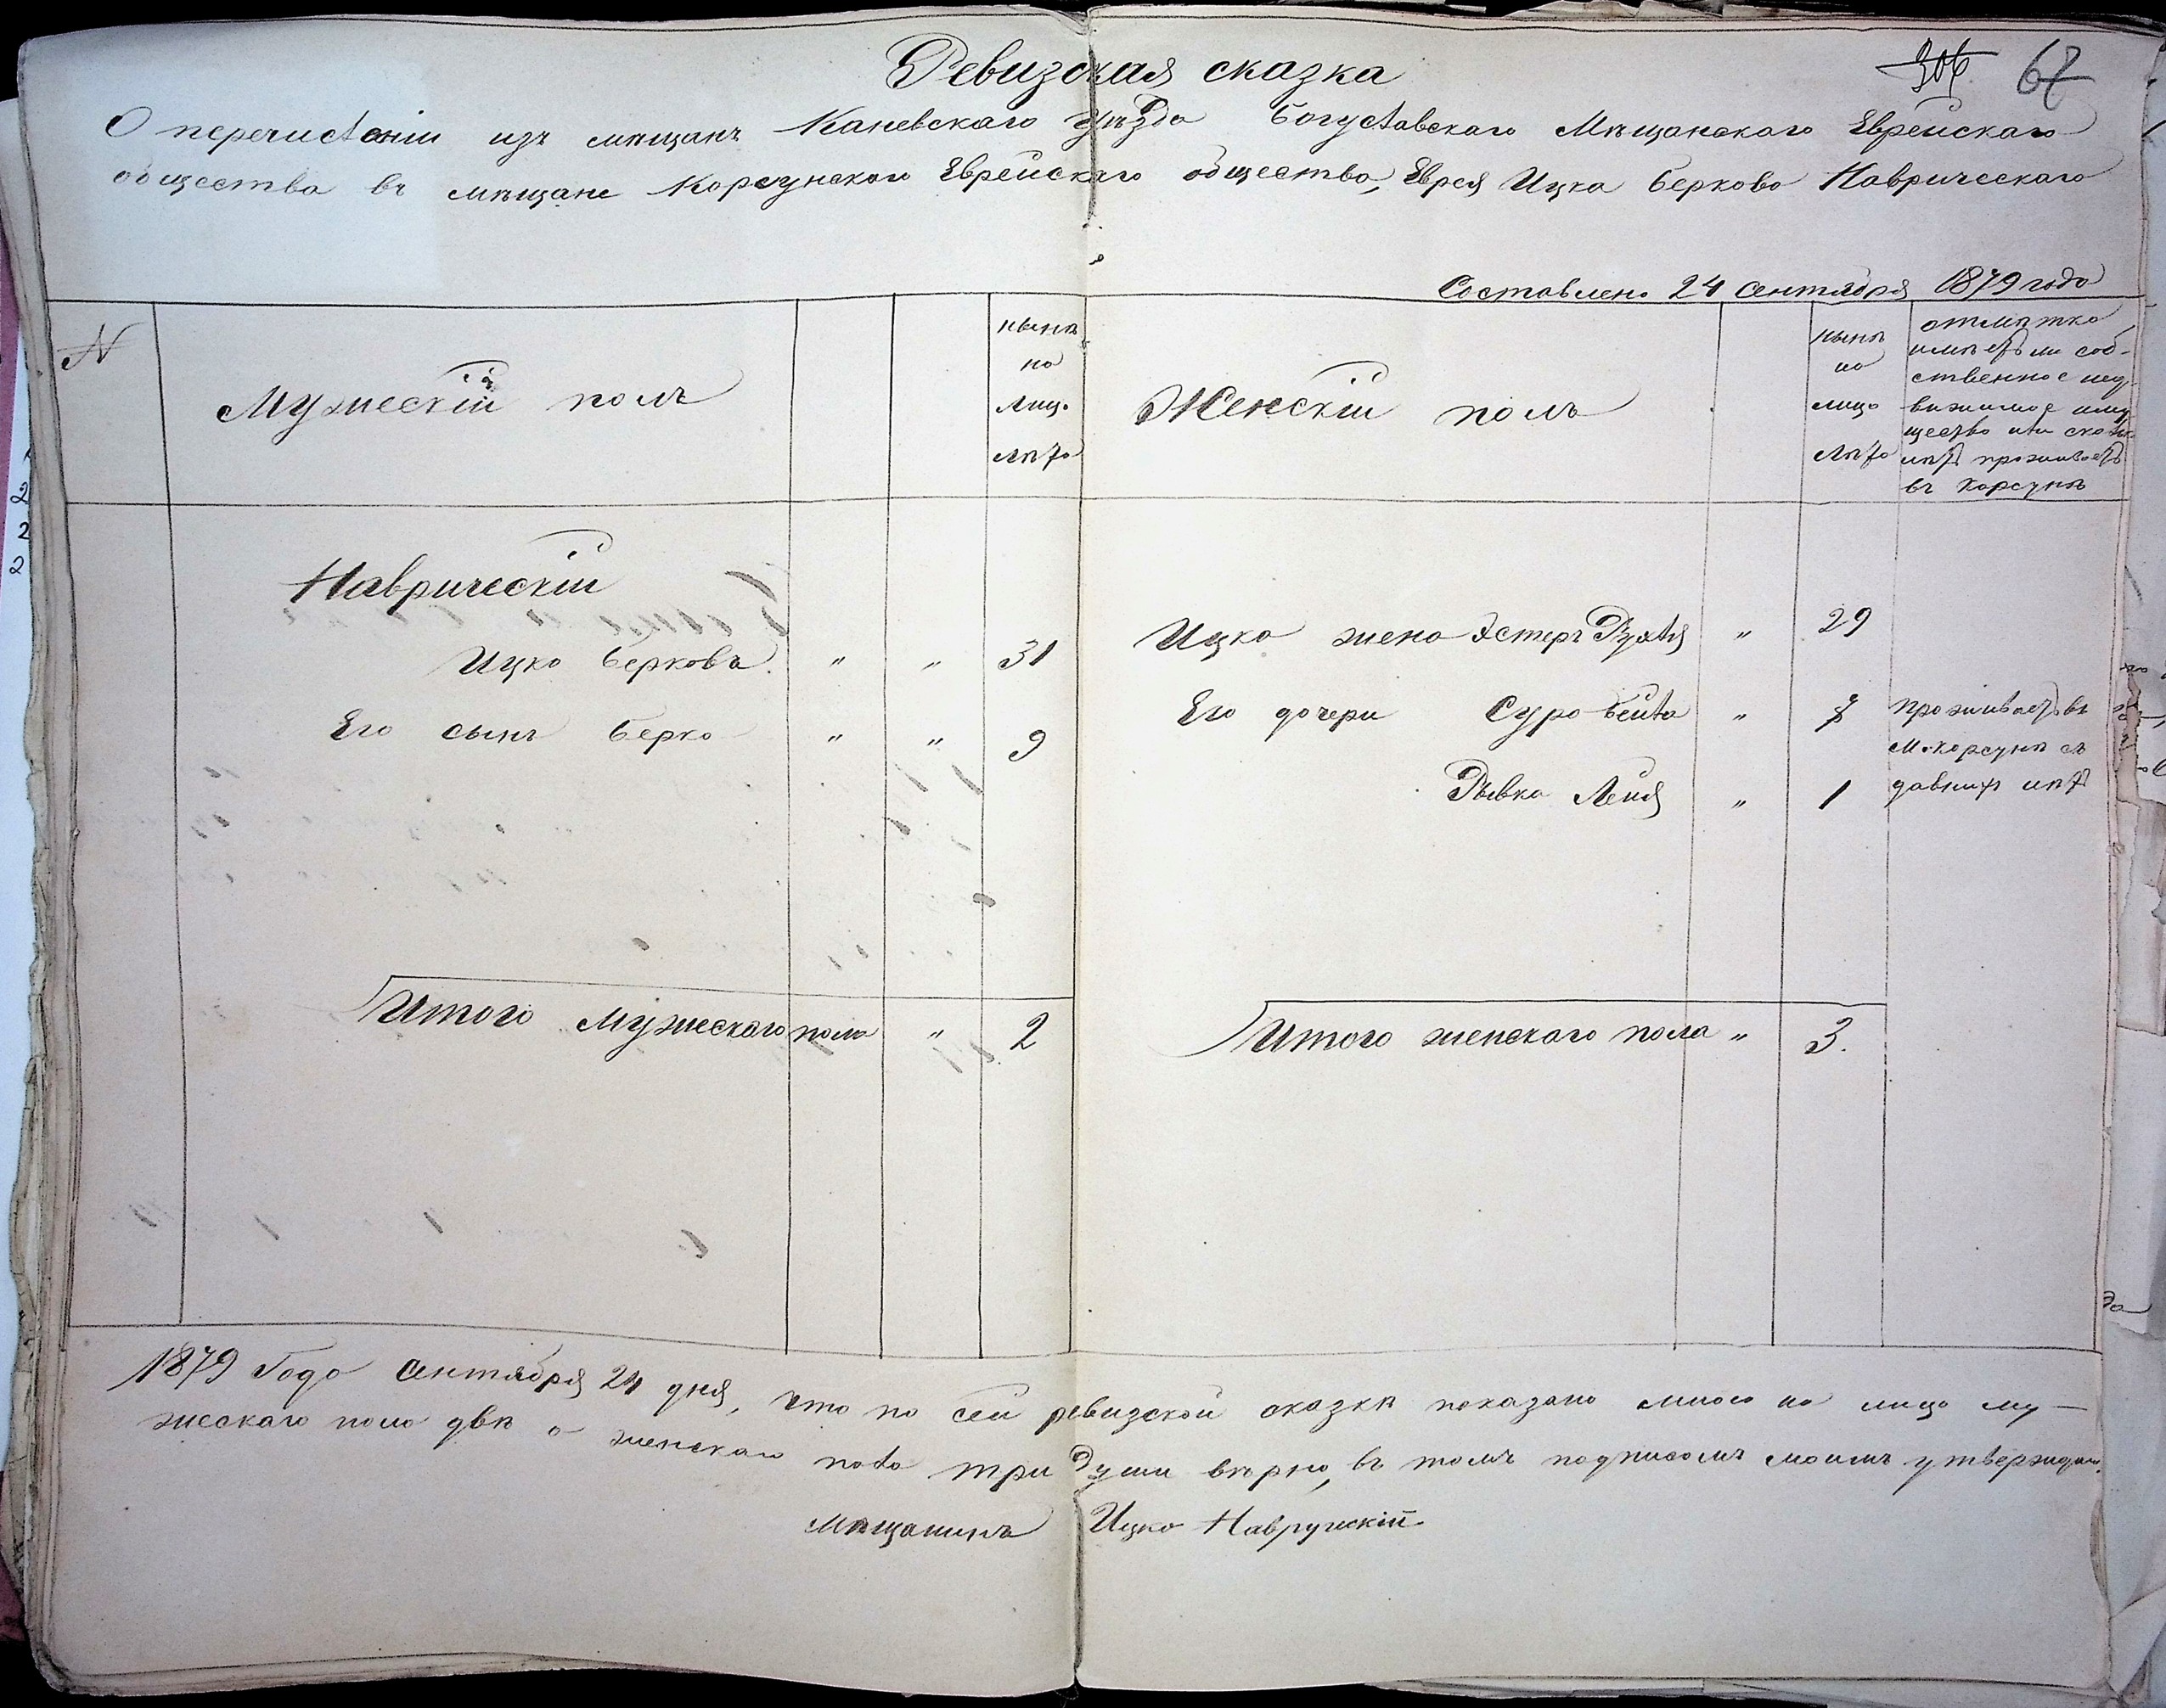 Ревизская сказка
306 67
О перечисленіи изъ мѣщанъ Каневскаго уѣзда Богуславскаго Мѣщанскаго Еврейскаго
общества въ мѣщане Корсунскаго Еврейскаго общества, Еврея Ицка Беркова Наврическаго
Составлено 24 Сентября 1879 года
N
Мужескій полъ
нынѣ
на
Лицо
лѣта
Женскій полъ
нынѣ
на
лицо
Лѣта
отмѣтка,
имѣетъ ли соб-
ственное нед-
вижимое иму
щество или сколько
лѣтъ проживаетъ
въ Корсунѣ
Наврическій
Ицко Берковъ " " 31
Его сынъ Берко " " 9
Ицка жена Эстеръ Рухля " 29
Его дочери Сура Бейла " 7 проживаетъ въ
м. Корсунѣ съ
Рывка Лея " 1 давнихъ лѣтъ
Итого Мужескаго пола " 2
Итого женскаго пола " 3.
1879 Года Сентября 24 дня, что по сей ревизской сказкѣ показано мною на лицо му-
жескаго пола двѣ а женскаго пола три души вѣрно, въ томъ подписомъ моимъ утверждаю.
Мѣщанинъ Ицко Навружскій